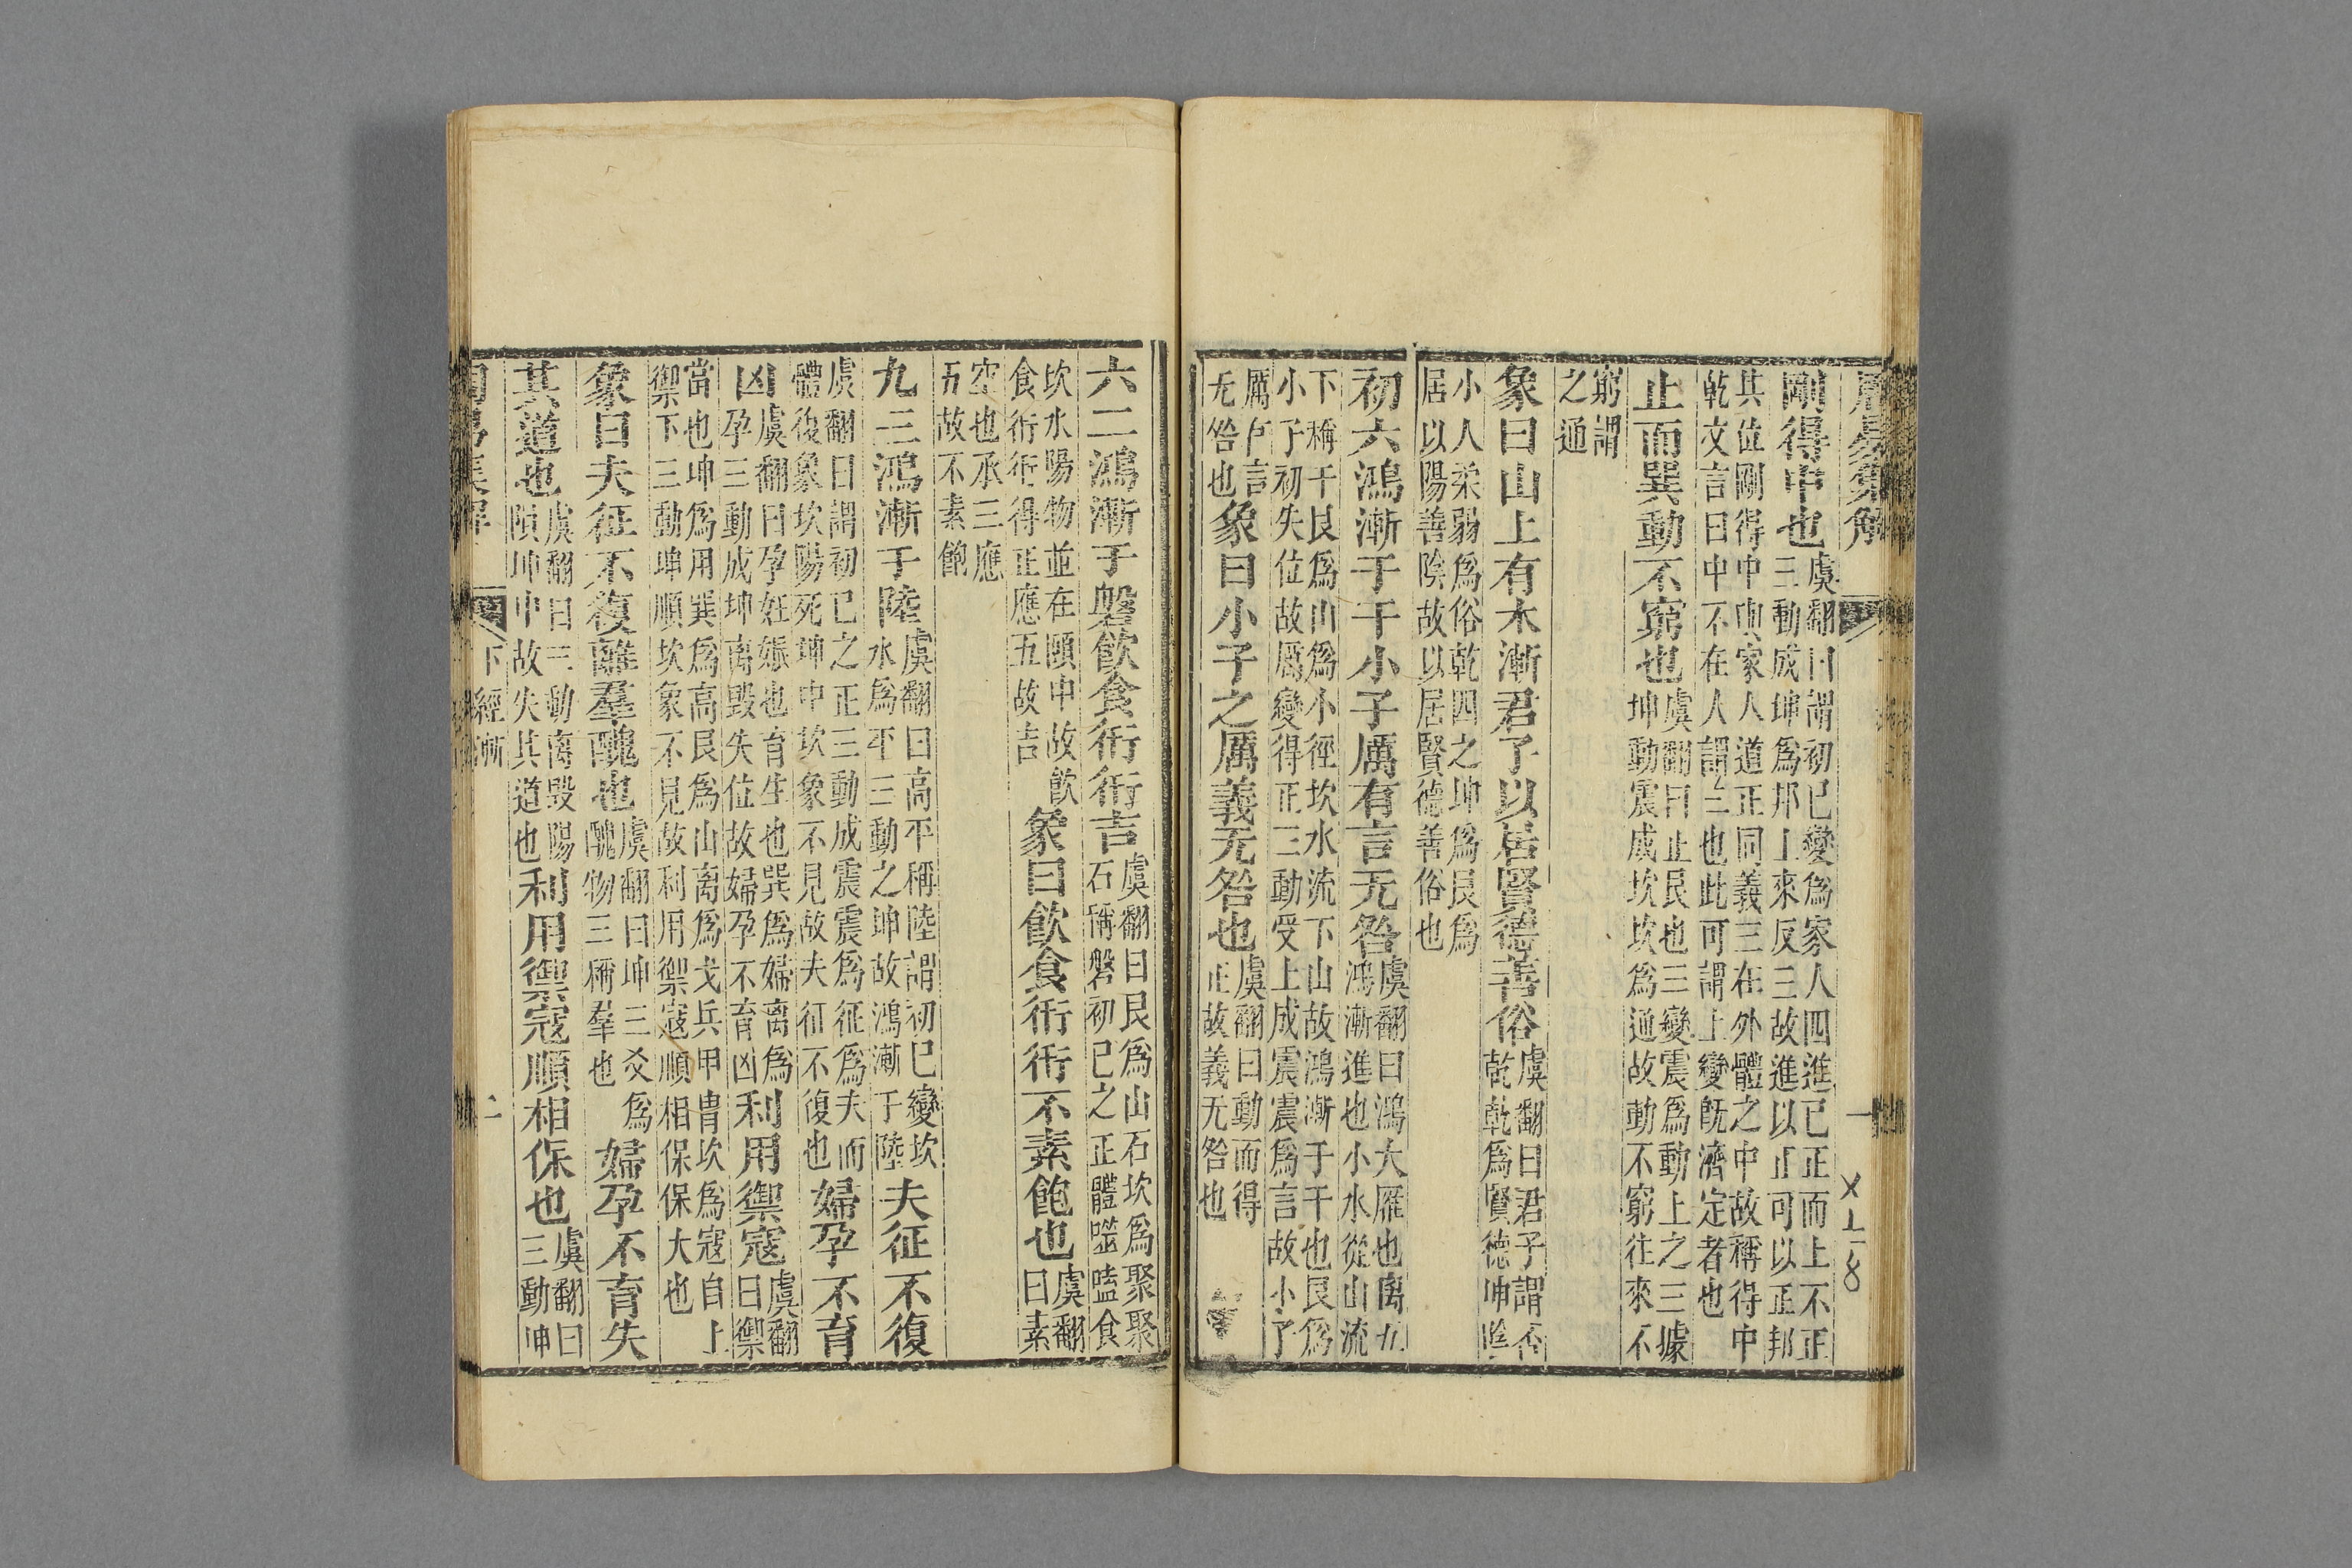 周易集解 一
剛得中也虞翻曰謂初已變爲家人四進已正而上不正三動成坤爲邦上來反三故進以正可以正邦
其位剛得中與家人道正同義三在外體之中故稱得中乾文言曰中不在人謂三也此可謂上變旣濟定者也
止而巽動不窮也虞翻曰止艮也三變震爲動上之三據坤動震成坎坎爲通故動不窮往來不
窮謂之通
象曰山上有木漸君子以居賢德善俗虞翻曰君子謂否乾乾爲賢德坤陰
小人柔弱爲俗乾四之坤爲艮爲居以陽善陰故以居賢德善俗也
初六鴻漸于干小子厲有言无咎虞翻曰鴻大雁也离五鴻漸進也小水從山流
下稱干艮爲山爲小徑坎水流下山故鴻漸于干也艮爲小子初失位故厲變得正三動受上成震震爲言故小子
厲有言无咎也象曰小子之厲義无咎也虞翻曰動而得正故義无咎也
六二鴻漸于磐飲食衎衎吉虞翻曰艮爲山石坎爲聚聚石稱磐初已之正體噬嗑食
坎水陽物並在頤中故飲食衎衎得正應五故吉象曰飲食衎衎不素飽也虞翻曰素
空也承三應五故不素飽
九三鴻漸于陸虞翻曰高平稱陸謂初已變坎水爲平三動之坤故鴻漸于陸夫征不復
虞翻曰謂初已之正三動成震震爲征爲夫而體復象坎陽死坤中坎象不見故夫征不復也婦孕不育
凶虞翻曰孕妊娠也育生也巽爲婦离爲孕三動成坤离毀失位故婦孕不育凶利用禦寇虞翻曰禦
當也坤爲用巽爲高艮爲山离爲戈兵甲冑坎爲寇自上禦下三動坤順坎象不見故利用禦寇順相保保大也
象曰夫征不復離羣醜也虞翻曰坤三爻爲醜物三稱羣也婦孕不育失
其道也虞翻曰三動离毀陽隕坤中故失其道也利用禦寇順相保也虞翻曰三動坤
周易集解 下經漸 二